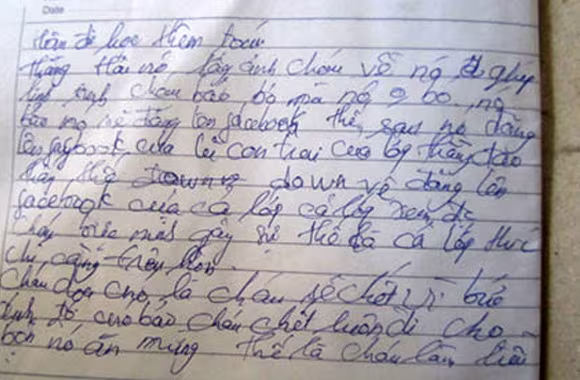 Date
hôm đi học thêm toán
thằng Hải nó lấy ảnh cháu về nó ghép
linh tinh cháu bảo bỏ mà nó bỏ, nó
bảo nó sẽ đăng lên facebook thế sau nó đăng
lên facybook của lũ con trai của lớp thằng tào
thấy thế down về đăng lên
facebook của cả lớp cả lớp xem đc
cháu bức mình gây sự thế là cả lớp thức
chị càng trêu hơn.
Cháu dọa chó là cháu sẽ chết vì bức
mình tổ cứ bảo cháu chết luôn đi cho
bọn nó ăn mừng thế là cháu làm liều